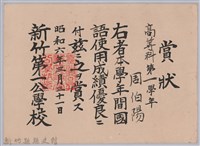 賞狀
高等科第一學年
周伯陽
右者本學年間國
語使用成績優良ニ
付茲ニ之ヲ賞ス
昭和六年三月三十一日
新竹第一公學校